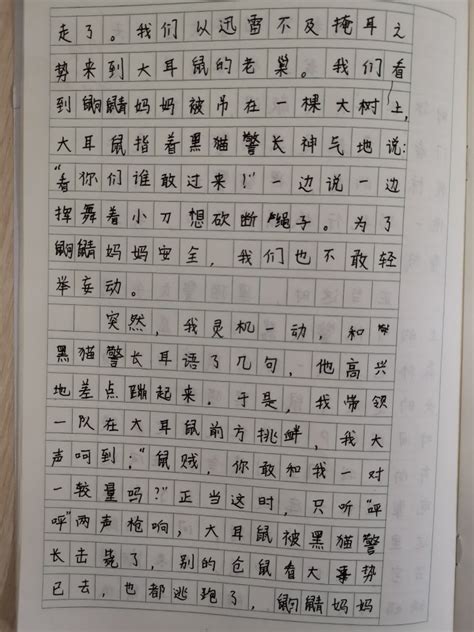 走了。我们以迅雷不及掩耳之
势来到大耳鼠的老巢。我们看
到鼩鼱妈妈被吊在一棵大树上，
大耳鼠指着黑猫警长神气地说：
“看你们谁敢过来！”一边说一边
挥舞着小刀想砍断绳子。为了
鼩鼱妈妈安全，我们也不敢轻
举妄动。
突然，我灵机一动，和
黑猫警长耳语了几句，他高兴
地差点蹦起来。于是，我带领
一队在大耳鼠前方挑衅，我大
声呵到：“鼠贼，你敢和我一对
一较量吗？”正当这时，只听“呯
呯”两声枪响，大耳鼠被黑猫警
长击毙了，别的仓鼠看大事势
已去，也都逃跑了，鼩鼱妈妈